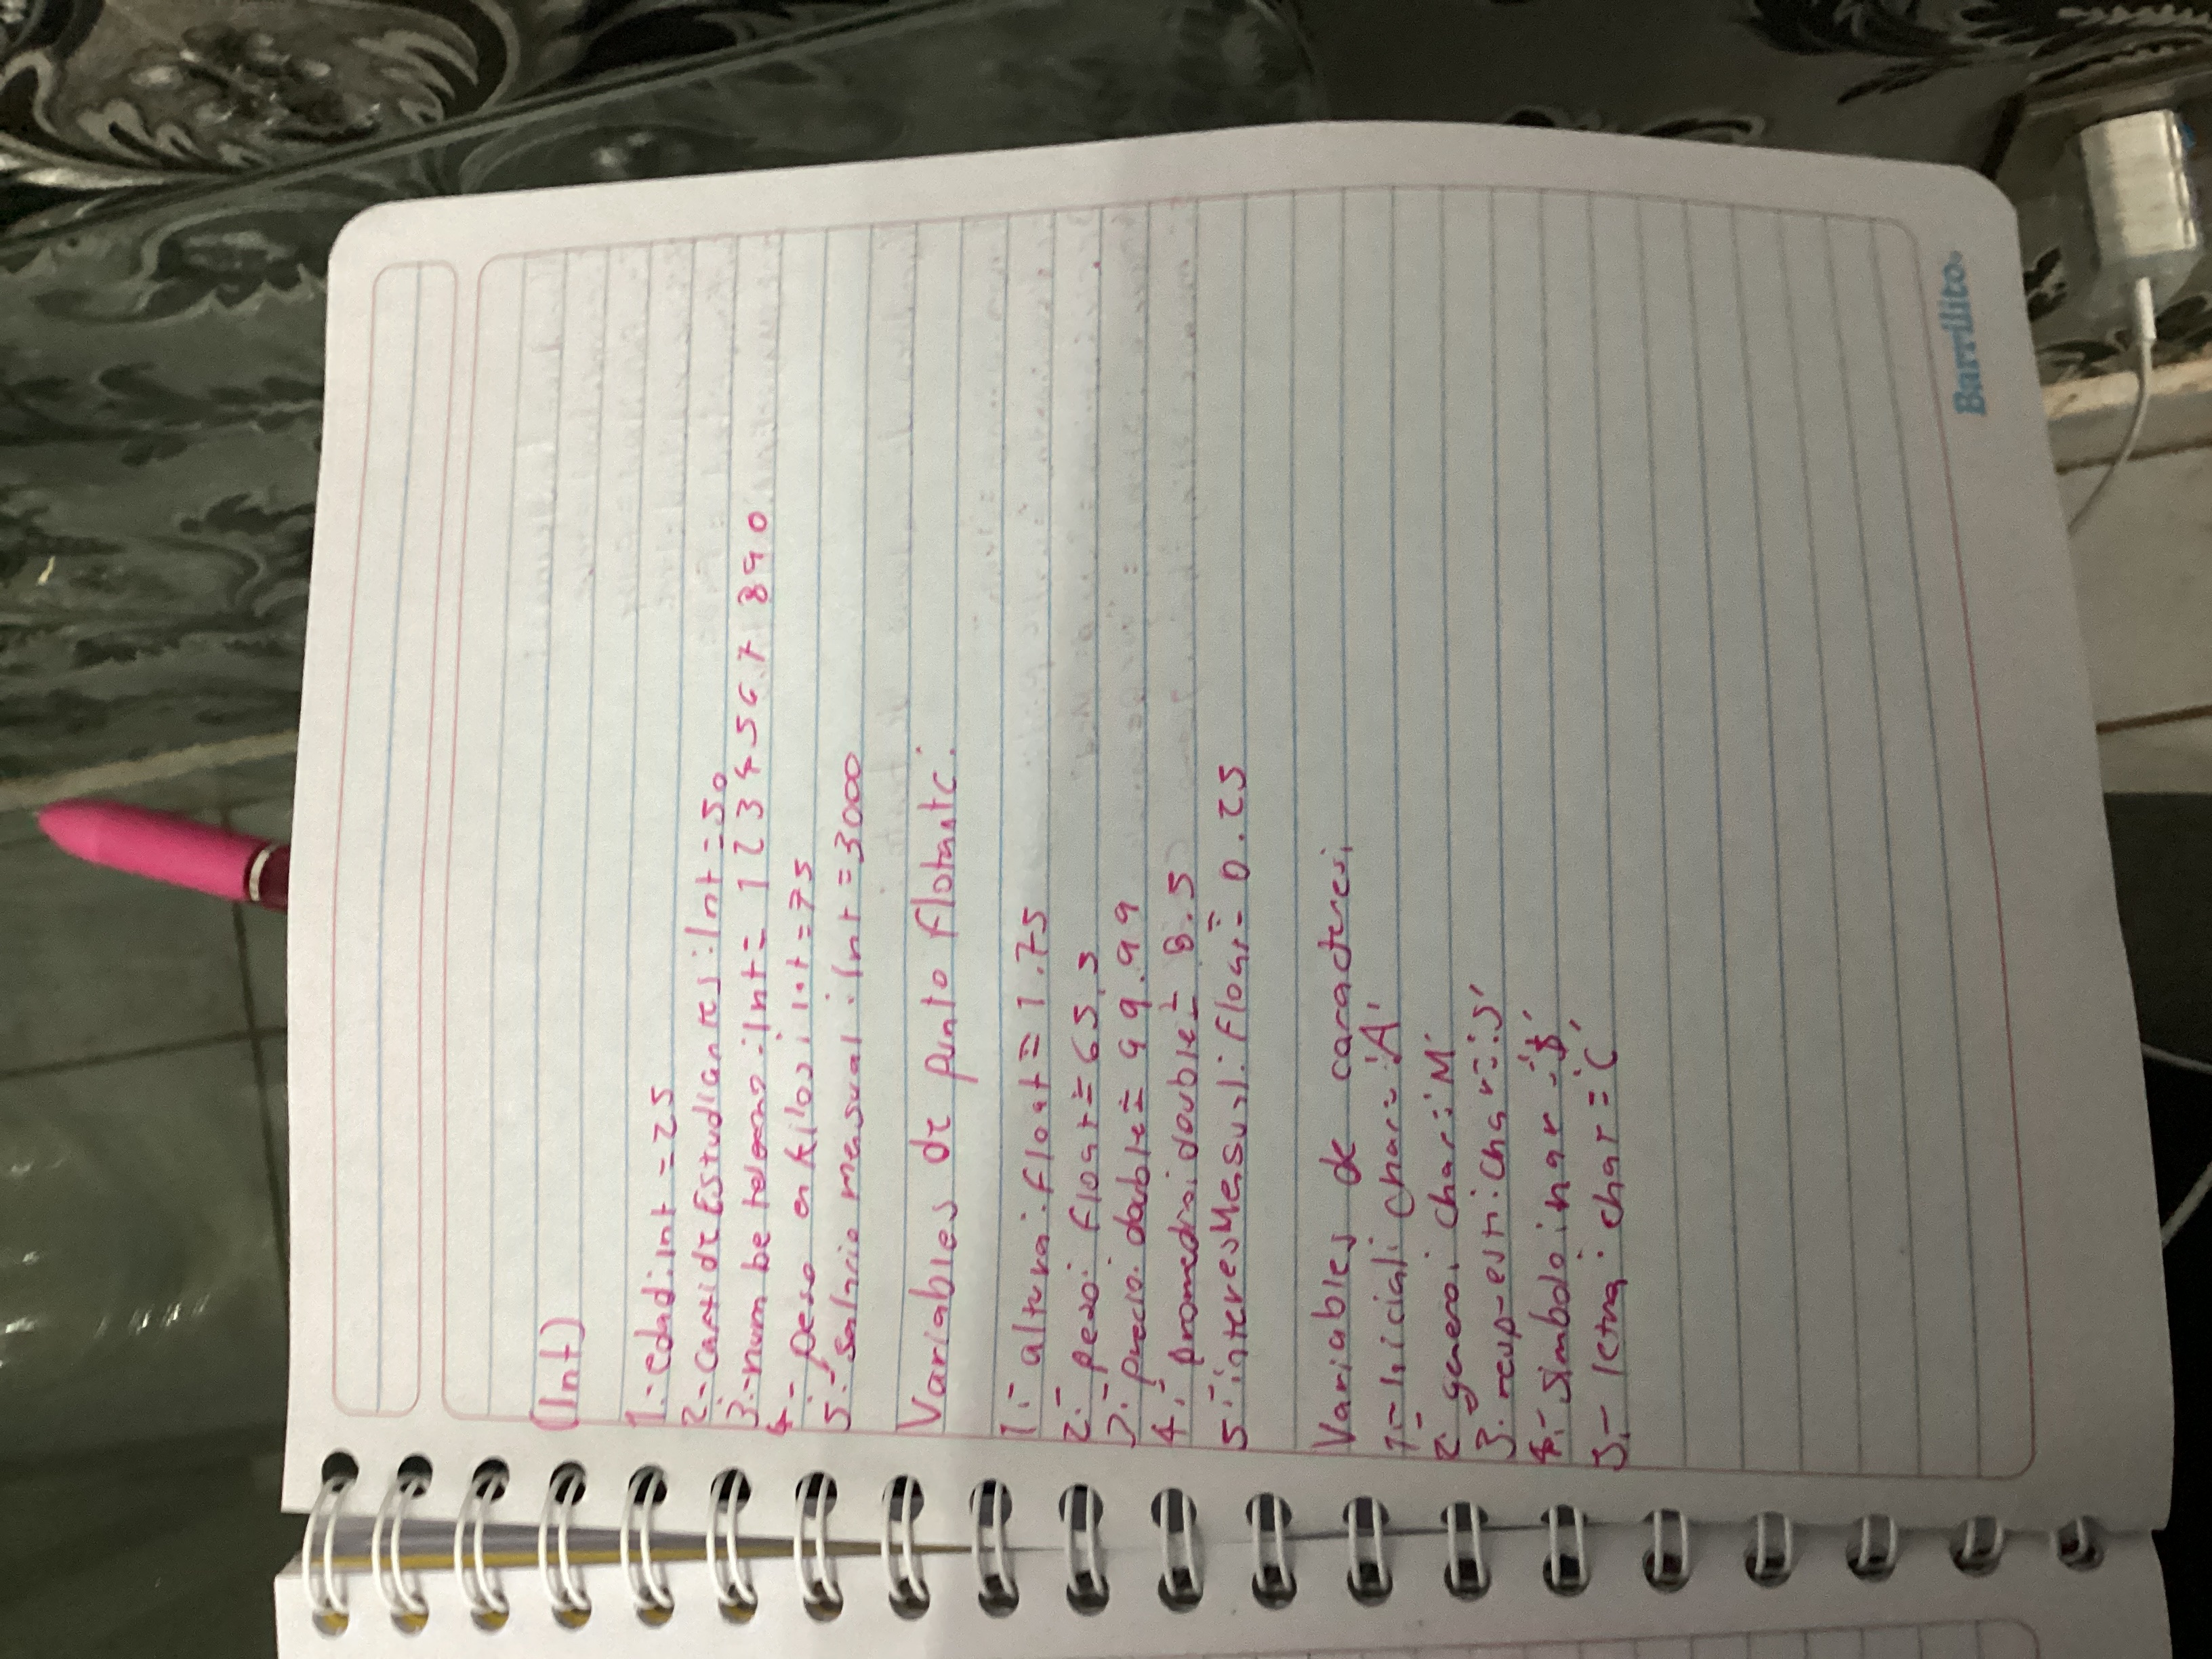 (Int)
1.- edad: int = 25
2.- cantidEstudiantes: Int = 50
3.- num be telefono: Int = 1234567890
4.- peso en kilos: int = 75
5.- salario mensual: Int = 3000
Variables de punto flotante:
1.- altura: float = 1.75
2.- peso: float = 65.5
3.- precio: double = 99.99
4.- promedio: double = 8.5
5.- interesMensual: float = 0.25
Variables de caracteres:
1.- inicial: char = 'A'
2.- genero: char: 'M'
3.- resp-est: char = 's'
4.- simbolo: har = '$'
5.- letra: char = 'C'
Barrilito